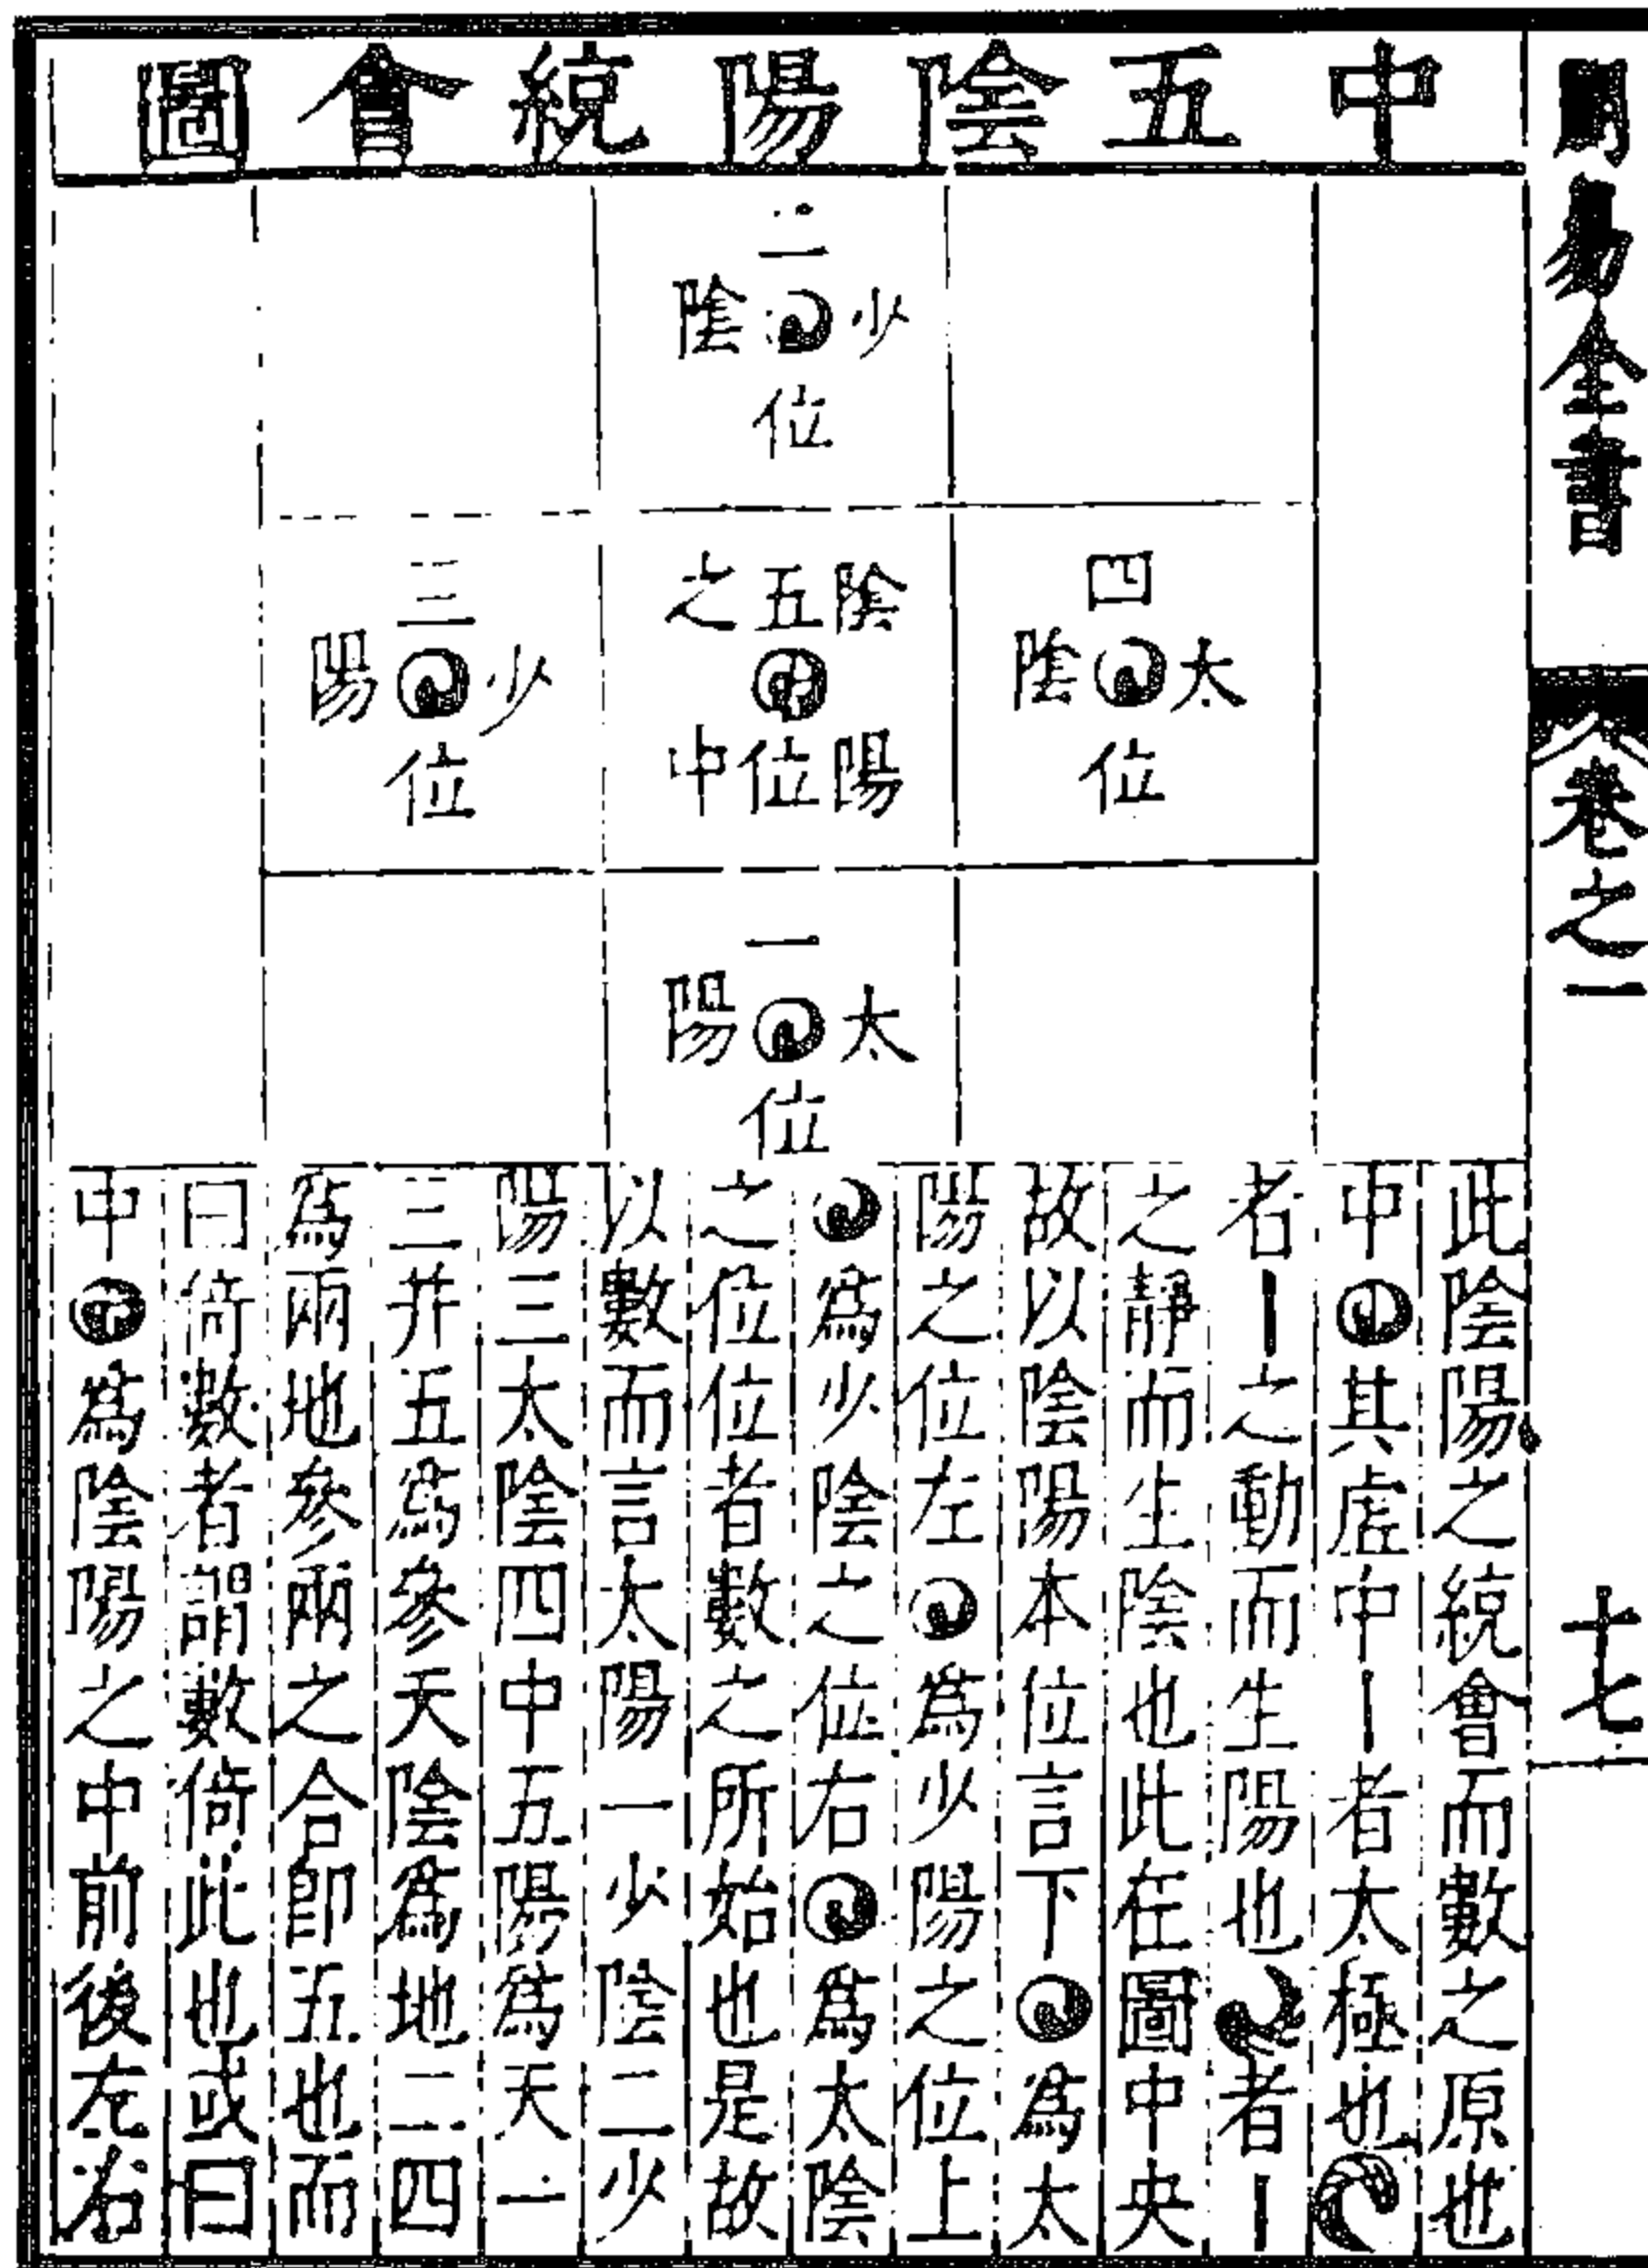 周易全書
卷之一
十七
中五陰陽統會圖
二
少陰
位
四
太陰
位
陰陽
五
位
之中
三
少陽
位
一
太陽
位
此陰陽之統會而數之原也
中其虛中丨者太極也
者丨之動而生陽也者丨
之靜而生陰也此在圖中央
故以陰陽本位言下為太
陽之位左為少陽之位上
為少陰之位右為太陰
之位位者數之所始也是故
以數而言太陽一少陰二少
陽三太陰四中五陽為天一
三并五為參天陰為地二四
為兩地參兩之合即五也而
曰倚數者謂數倚此也或曰
中為陰陽之中前後左右